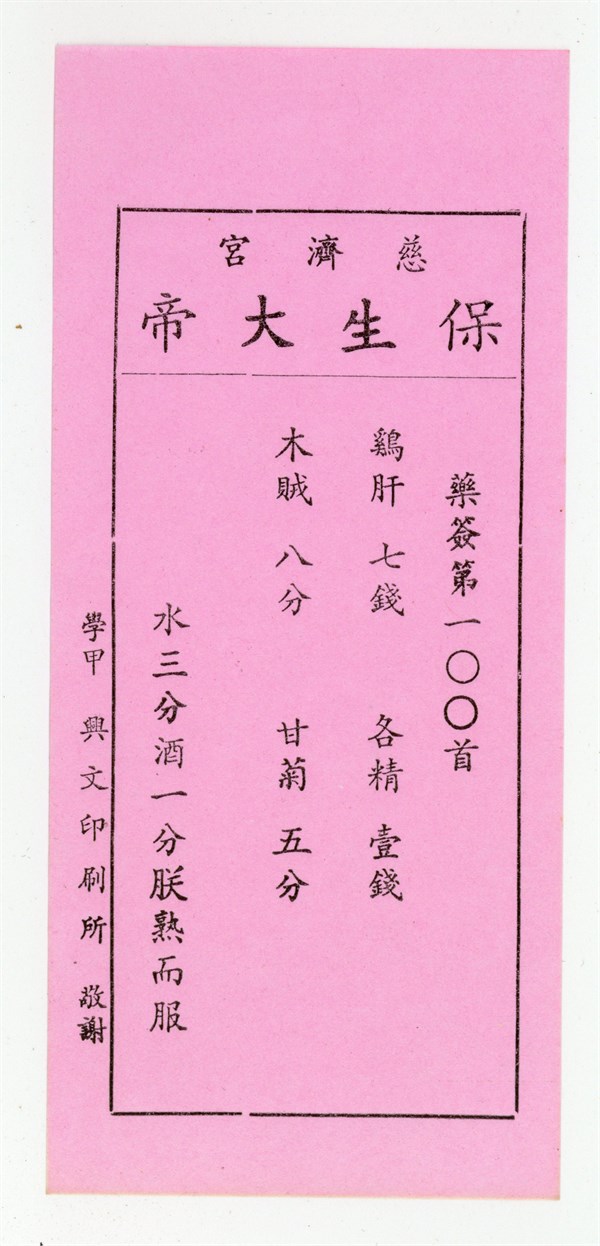 慈濟宮
保生大帝
藥簽第一〇〇首
鷄肝 七錢 各精 壹錢
木賊 八分 甘菊 五分
水三分酒一分朕熟而服
學甲 興文印刷所 敬謝